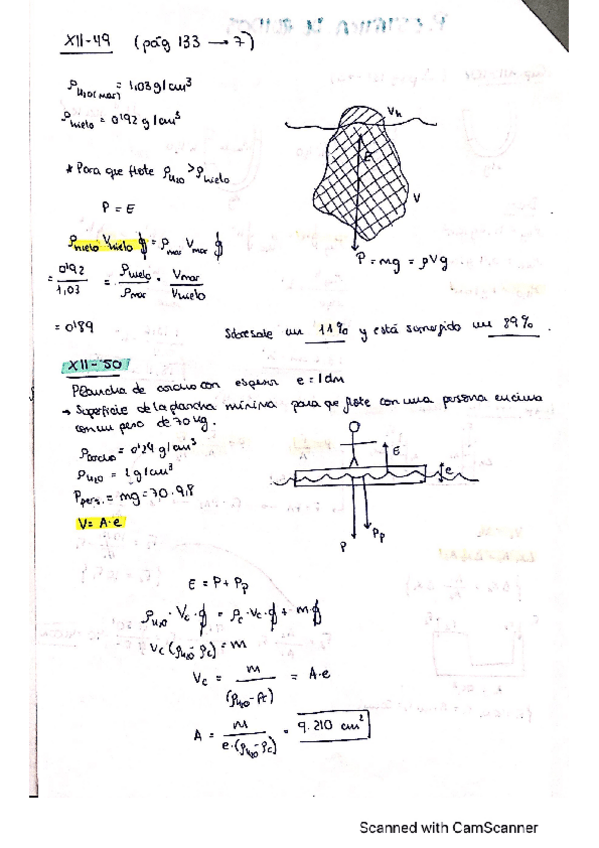 XII-49 (pág 133 → 7)
ρH₂O(mar) = 1,03 g/cm³
ρhielo = 0'92 g/cm³
* Para que flote ρH₂O > ρhielo
P = E
ρhielo · Vhielo g = ρmar Vmar g
= 0'92 / 1,03 = ρhielo / ρmar · Vmar / Vhielo
= 0'89
Vh
E
V
P = mg = ρVg
Sobresale un 11% y está sumergido un 89%.
XII-50
Plancha de corcho con espesor e = 1dm
→ Superficie de la plancha mínima para que flote con una persona encima
con un peso de 70 kg.
ρcorcho = 0'24 g/cm³
ρH₂O = 1 g/cm³
Ppers. = mg = 70 · 9,8
V = A·e
E
e
P
Pp
E = P + Pp
ρH₂O · Vc · g = ρc · Vc · g + m · g
Vc (ρH₂O - ρc) = m
Vc = m / (ρH₂O - ρc) = A·e
A = m / e·(ρH₂O - ρc) = 9.210 cm²
Scanned with CamScanner